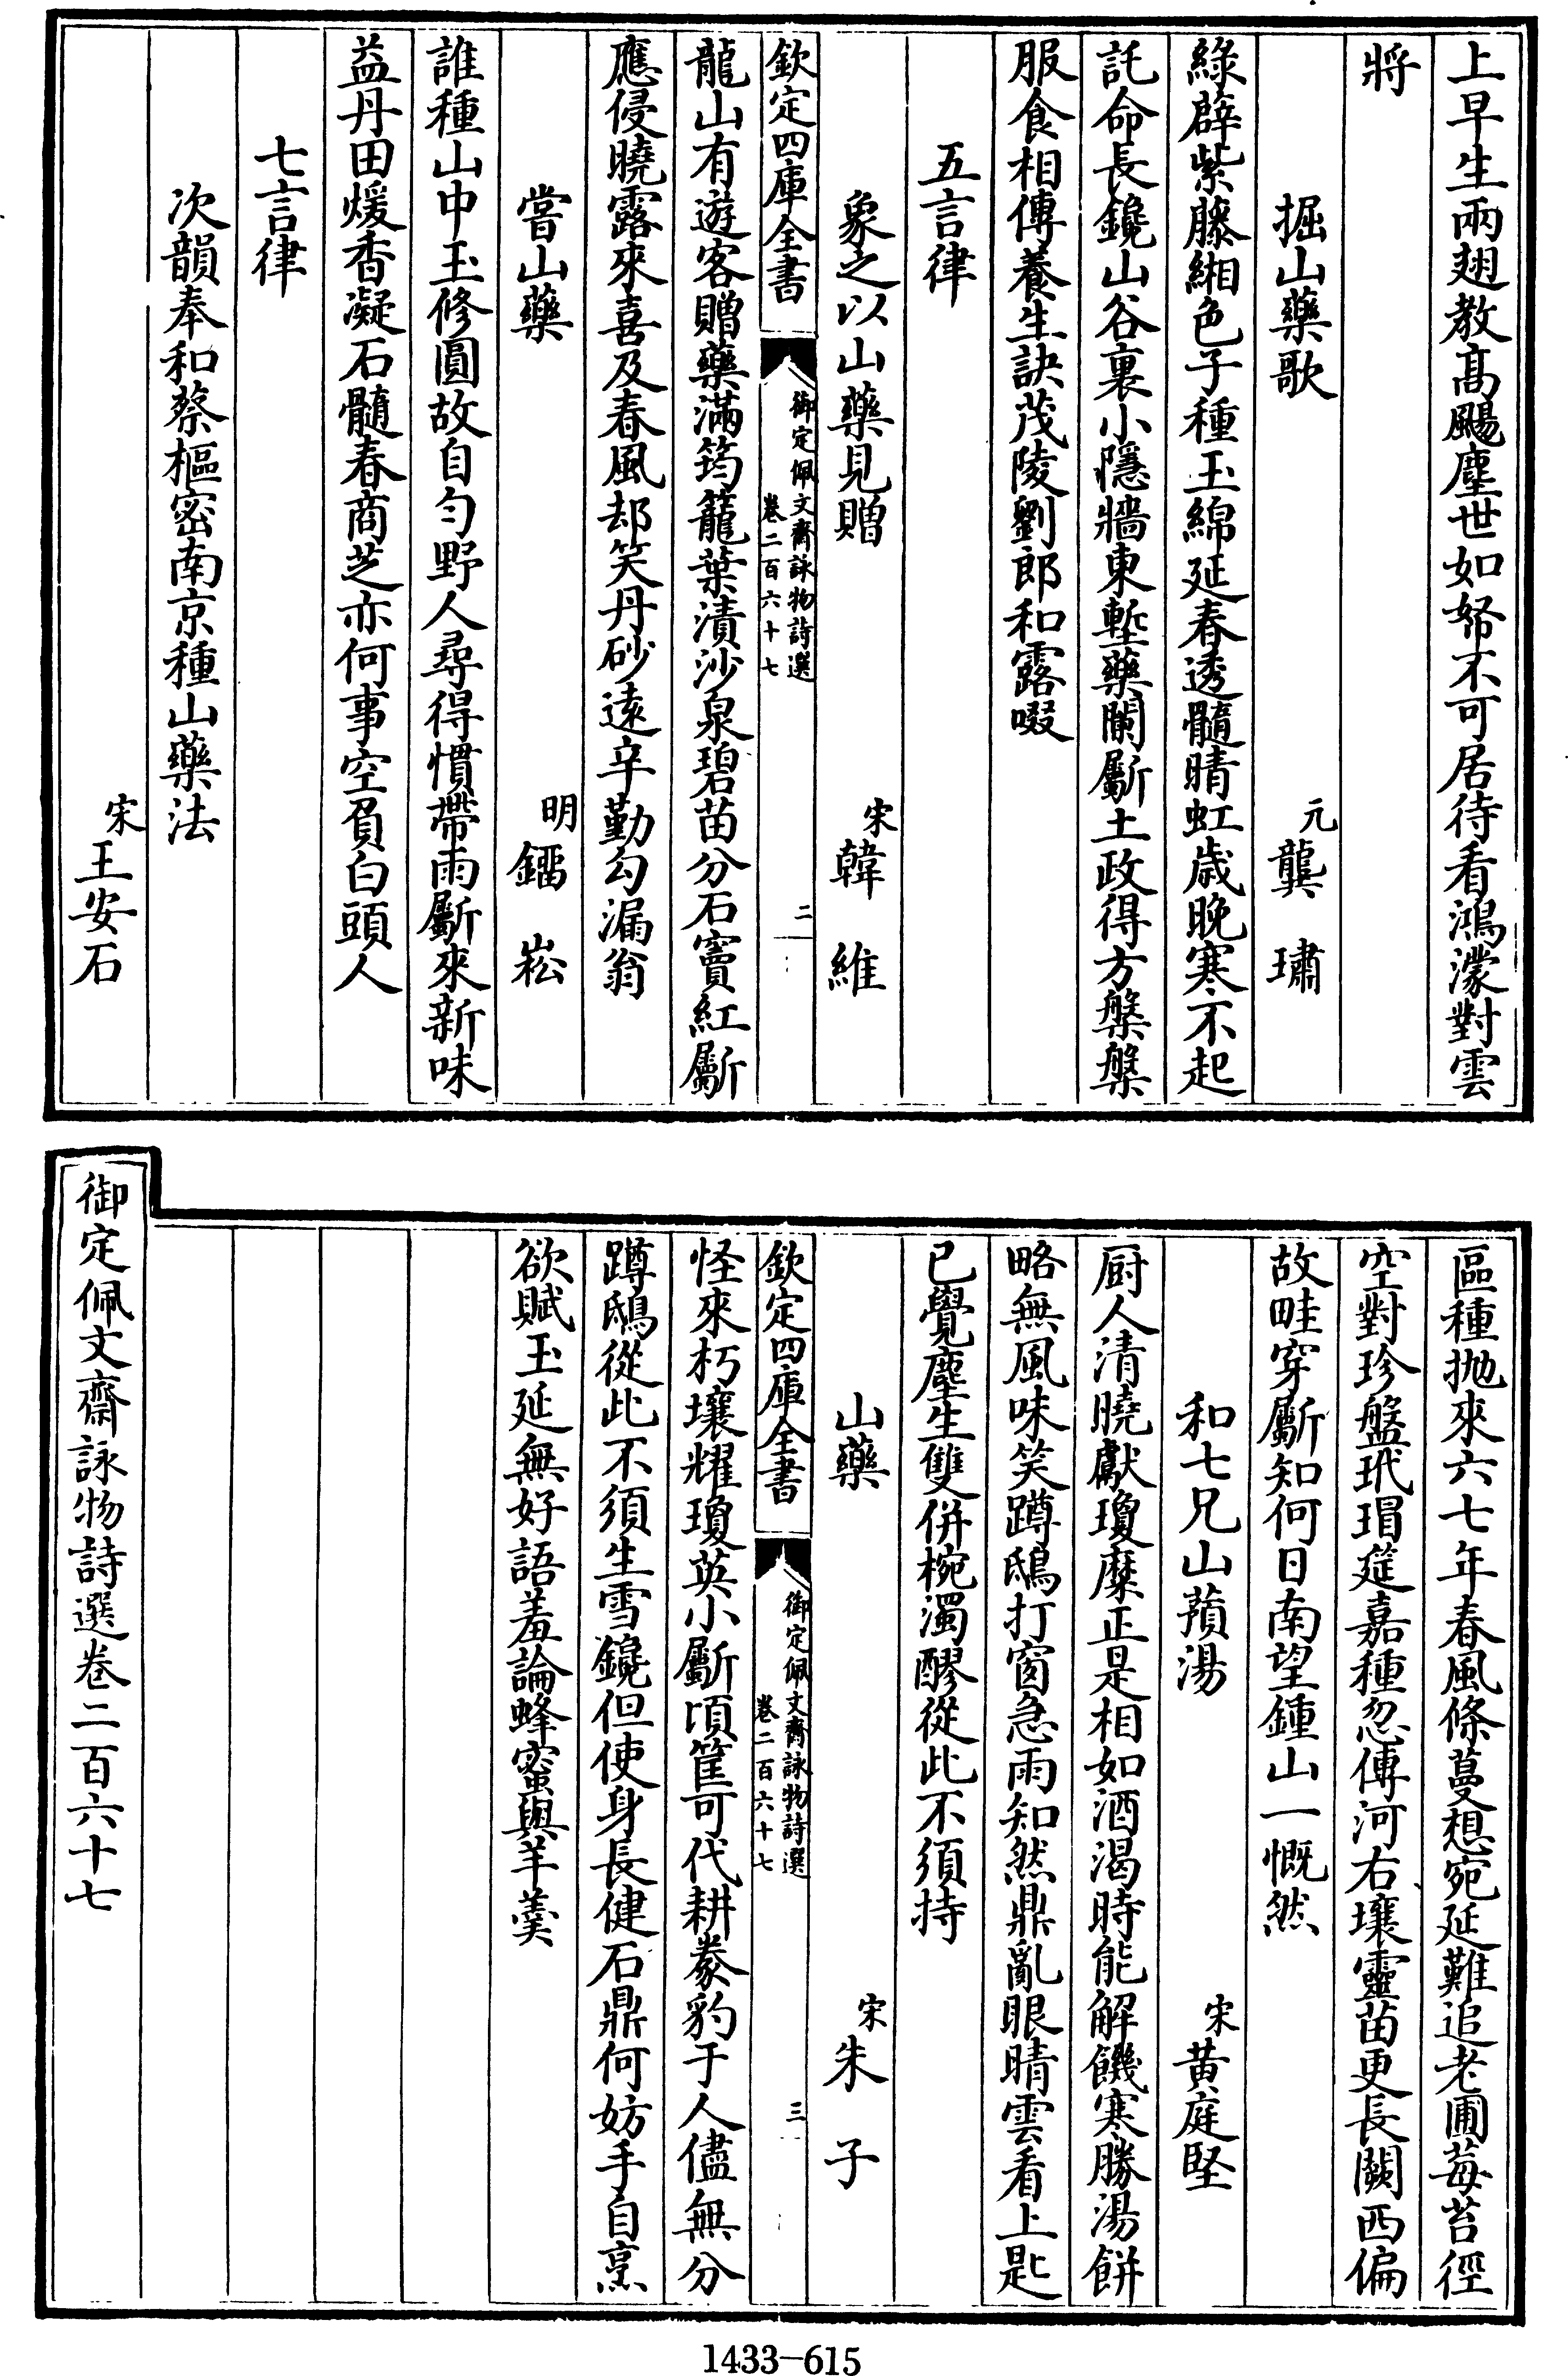 上早生兩翅教髙颺塵世如帑不可居待看鴻濛對雲
將
掘山藥歌
元龔璛
綠薜紫藤緗色子種玉綿延春透髓晴虹歲晚寒不起
託命長鑱山谷裏小隱牆東塹藥闌斸土政得方槃槃
服食相傳養生訣茂陵劉郎和露啜
五言律
象之以山藥見贈
宋韓維
欽定四庫全書
御定佩文齋詠物詩選
卷二百六十七
二
龍山有遊客贈藥滿筠籠葉漬沙泉碧苗分石竇紅斸
應侵曉露來喜及春風却笑丹砂遠辛勤勾漏翁
嘗山藥
明鐂崧
誰種山中玉修圓故自勻野人尋得慣帶雨斸來新味
益丹田煖香凝石髓春商芝亦何事空負白頭人
七言律
次韻奉和蔡樞密南京種山藥法
宋王安石
區種抛來六七年春風條蔓想宛延難追老圃莓苔徑
空對珍盤玳瑁筵嘉種忽傳河右壤靈苗更長闕西偏
故畦穿斸知何日南望鍾山一慨然
和七兄山蕷湯
宋黄庭堅
厨人清曉獻瓊糜正是相如酒渴時能解饑寒勝湯餅
略無風味笑蹲鴟打窗急雨知然鼎亂眼晴雲看上匙
已覺塵生雙併椀濁醪從此不須持
山藥
宋朱子
欽定四庫全書
御定佩文齋詠物詩選
卷二百六十七
三
怪來朽壤耀瓊英小斸頃筐可代耕豢豹于人儘無分
蹲鴟從此不須生雪鑱但使身長健石鼎何妨手自烹
欲賦玉延無好語羞論蜂蜜與羊羹
御定佩文齋詠物詩選卷二百六十七
1433-615